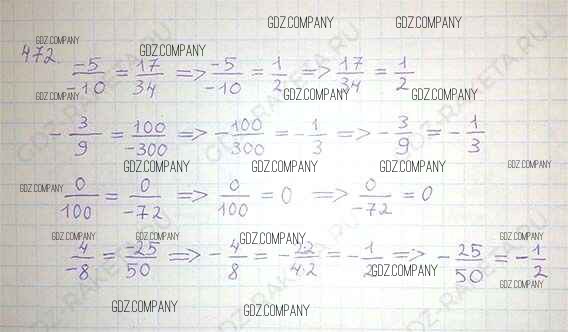 GDZ.COMPANY GDZ.COMPANY
GDZ.COMPANY GDZ.COMPANY
472. -5/-10 = 17/34 => -5/-10 = 1/2 => 17/34 = 1/2
GDZ.COMPANY GDZ.COMPANY GDZ.COMPANY
- 3/9 = 100/-300 => - 100/300 = - 1/3 => - 3/9 = - 1/3
GDZ.COMPANY GDZ.COMPANY GDZ.COMPANY GDZ.COMPANY
GDZ.COMPANY 0/100 = 0/-72 => 0/100 = 0 => 0/-72 = 0
GDZ.COMPANY GDZ.COMPANY GDZ.COMPANY GDZ.COMPANY
4/-8 = -25/50 => - 4/8 = - 2·2/4·2 = - 1/2 => - 25/50 = - 1/2
GDZ.COMPANY GDZ.COMPANY
GDZ.COMPANY GDZ.COMPANY
GDZ-RAKETA.RU